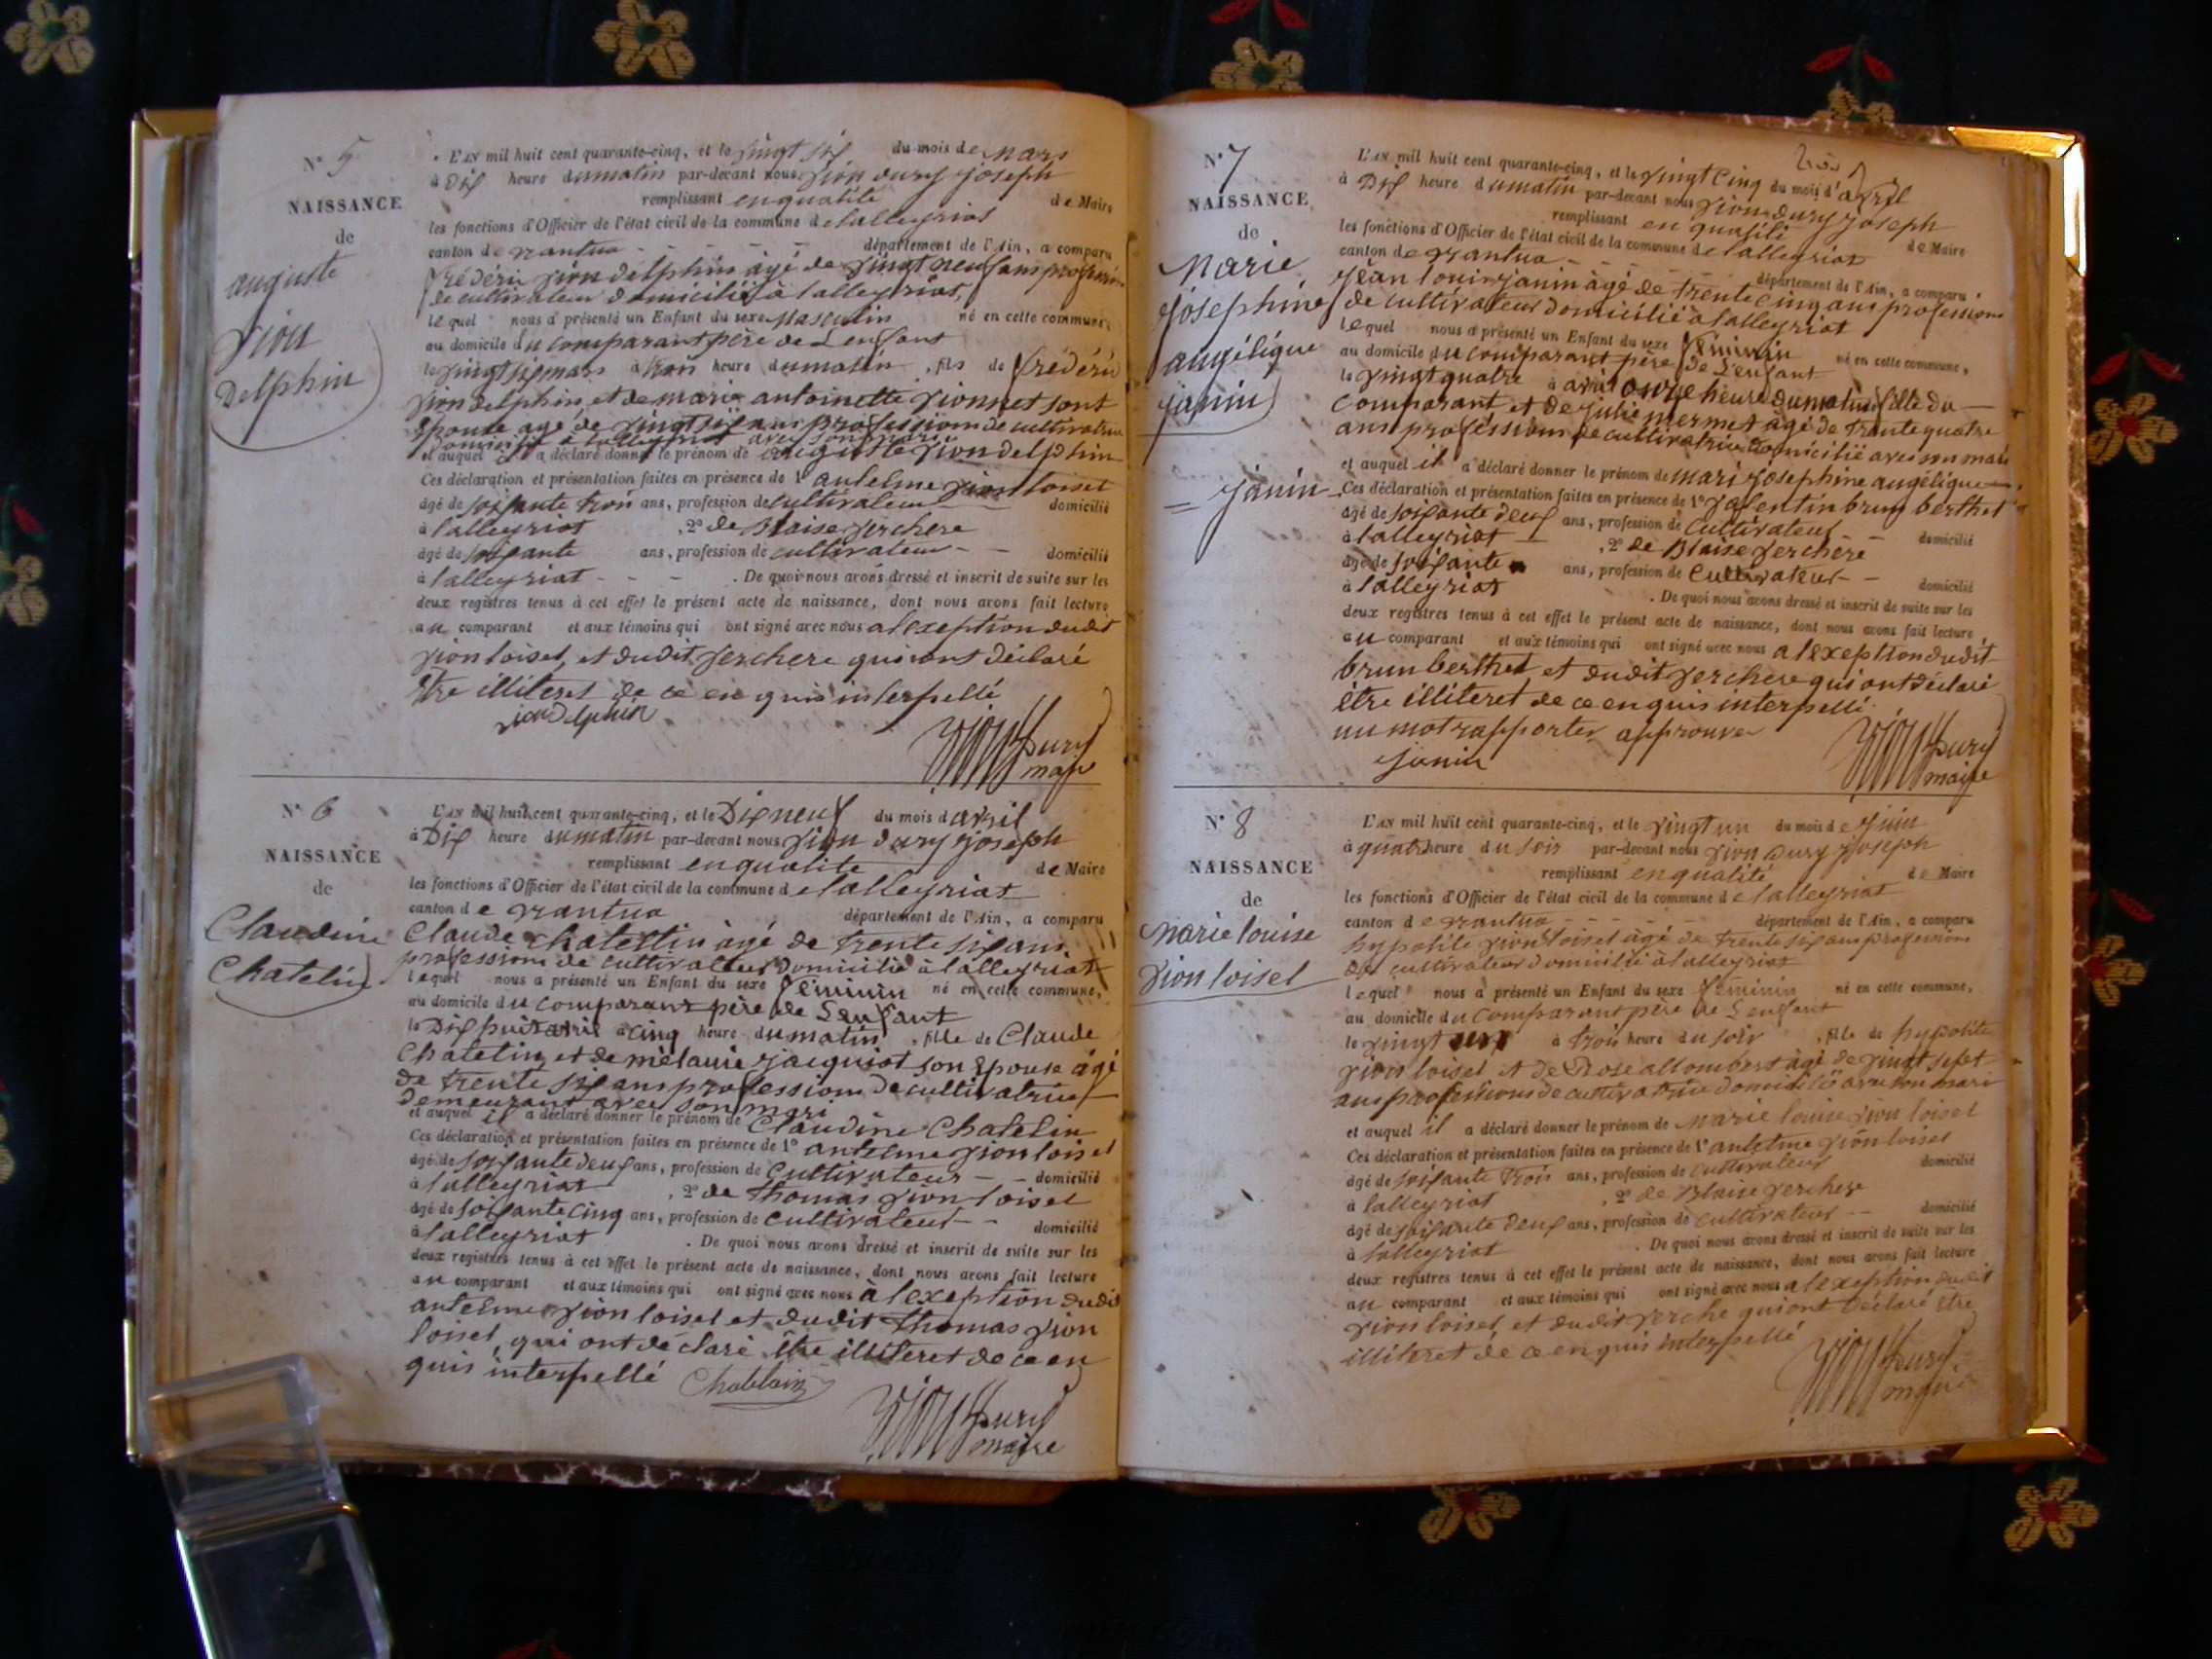 N° 5
NAISSANCE
de
auguste
Vion
Delphin
L'AN mil huit cent quarante-cinq, et le vingt six du mois de Mars
à Dix heure du matin par-devant nous Vion dury joseph
remplissant en qualité de Maire
les fonctions d'Officier de l'état civil de la commune de Lalleyriat
canton de Nantua département de l'Ain, a comparu
frédéric Vion delphin âgé de vingt neuf ans profession
de cultivateur domicilié à Lalleyriat,
lequel nous a présenté un Enfant du sexe Masculin né en cette commune,
au domicile du comparant père de L'enfant
le vingt six mars à trois heure du matin, fils de frédéric
Vion delphin, et de marie antoinette Vionnet sont
Epouse agé de vingt six ans profession de cultivatrice
Domicilié à Lalleyriat avec son mari
et auquel il a déclaré donner le prénom de auguste Vion delphin
Ces déclaration et présentation faites en présence de 1° antelme Vion loiset
âgé de soixante trois ans, profession de cultivateur domicilié
à Lalleyriat, 2° de Blaise Verchere
âgé de soixante ans, profession de cultivateur domicilié
à Lalleyriat. De quoi nous avons dressé et inscrit de suite sur les
deux registres tenus à cet effet le présent acte de naissance, dont nous avons fait lecture
au comparant et aux témoins qui ont signé avec nous a lexeption dudit
Vion loiset, et dudit Verchere qui ont déclaré
être illiteret de ce en quis interpellé
vion delphin
Vion Dury
maire
N° 6
NAISSANCE
de
Claudine
Chatelin
L'AN mil huit cent quarante-cinq, et le Dix neuf du mois d avril
à Dix heure du matin par-devant nous Vion dury joseph
remplissant en qualité de Maire
les fonctions d'Officier de l'état civil de la commune de Lalleyriat
canton de Nantua département de l'Ain, a comparu
Claude chatelin âgé de trente six ans
profession de cultivateur domicilié à Lalleyriat
lequel nous a présenté un Enfant du sexe féminin né en cette commune,
au domicile du comparant père de L'enfant
le Dix huit avril à cinq heure du matin, fille de Claude
Chatelin, et de mélanie jacquiot son Epouse âgé
de trente six ans profession de cultivatrice
demeurant avec son mari
et auquel il a déclaré donner le prénom de Claudine Chatelin
Ces déclaration et présentation faites en présence de 1° antelme Vion loiset
âgé de soixante deux ans, profession de Cultivateur domicilié
à Lalleyriat, 2° de thomas Vion loiset
âgé de soixante cinq ans, profession de cultivateur domicilié
à Lalleyriat. De quoi nous avons dressé et inscrit de suite sur les
deux registres tenus à cet effet le présent acte de naissance, dont nous avons fait lecture
au comparant et aux témoins qui ont signé avec nous à lexeption dudit
antelme Vion loiset et dudit thomas Vion
loiset, qui ont déclaré être illiteret de ce en
quis interpellé Chatelain
Vion Dury
maire
N° 7
NAISSANCE
de
Marie
josephine
angélique
janin
janin
L'AN mil huit cent quarante-cinq, et le vingt cinq du mois d'avril
à Dix heure du matin par-devant nous Vion dury joseph
remplissant en qualité de Maire
les fonctions d'Officier de l'état civil de la commune de Lalleyriat
canton de Nantua département de l'Ain, a comparu
jean louis janin âgé de trente cinq ans profession
de cultivateur domicilié à Lalleyriat
lequel nous a présenté un Enfant du sexe féminin né en cette commune,
au domicile du comparant père de L'enfant
le vingt quatre à avril onze heure du matin fille du
comparant, et de julie mermet âgé de trente quatre
ans profession de cultivatrice domicilié avec son mari
et auquel il a déclaré donner le prénom de mari josephine angélique
Ces déclaration et présentation faites en présence de 1° Valentin brun berthet
âgé de soixante deux ans, profession de Cultivateur domicilié
à Lalleyriat, 2° de Blaise Verchere
âgé de soixante ans, profession de Cultivateur domicilié
à Lalleyriat. De quoi nous avons dressé et inscrit de suite sur les
deux registres tenus à cet effet le présent acte de naissance, dont nous avons fait lecture
au comparant et aux témoins qui ont signé avec nous a lexeption dudit
brun berthet, et dudit Verchere qui ont déclaré
être illiteret de ce en quis interpellé
un mot rapporter approuver
janin
Vion Dury
maire
N° 8
NAISSANCE
de
Marie louise
Vion loiset
L'AN mil huit cent quarante-cinq, et le vingt un du mois de juin
à quatr heure du soir par-devant nous Vion Dury joseph
remplissant en qualité de Maire
les fonctions d'Officier de l'état civil de la commune de Lalleyriat
canton de Nantua département de l'Ain, a comparu
hypolite Vion loiset âgé de trente six ans profession
de cultivateur domicilié à Lalleyriat
lequel nous a présenté un Enfant du sexe féminin né en cette commune,
au domicile du comparant père de L'enfant
le vingt à trois heure du soir, fille de hypolite
Vion loiset et de Rose allombert âgé de vingt sept
ans profession de cultivatrice domicilié avec son mari
et auquel il a déclaré donner le prénom de Marie louise Vion loiset
Ces déclaration et présentation faites en présence de 1° antelme Vion loiset
âgé de soixante trois ans, profession de cultivateur domicilié
à Lalleyriat, 2° de Blaise Verchere
âgé de soixante deux ans, profession de cultivateur domicilié
à Lalleyriat. De quoi nous avons dressé et inscrit de suite sur les
deux registres tenus à cet effet le présent acte de naissance, dont nous avons fait lecture
au comparant et aux témoins qui ont signé avec nous a lexeption dudit
Vion loiset, et dudit Verche qui ont déclaré être
illiteret de ce en quis interpellé
Vion Dury
maire